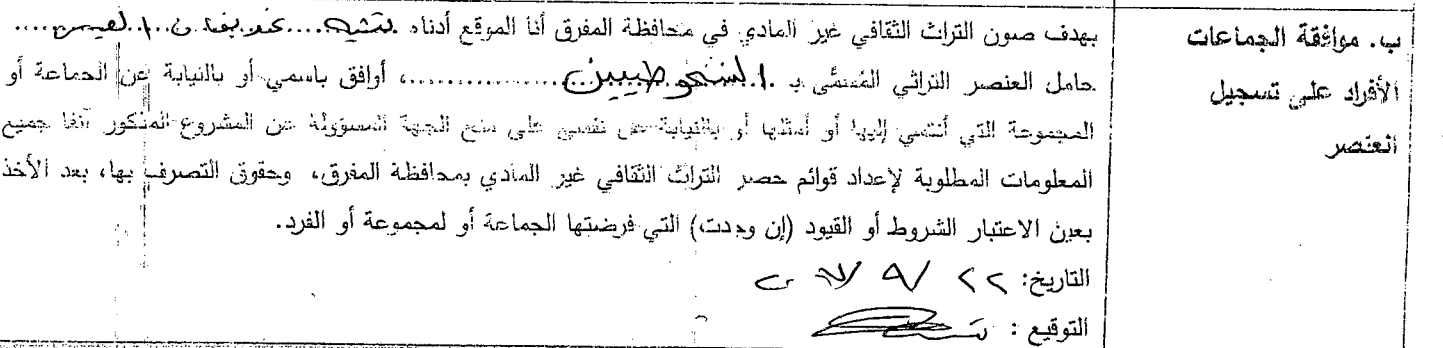 ب. موافقة الجماعات
الأفراد على تسجيل
العنصر
بهدف صون التراث الثقافي غير المادي في محافظة المفرق أنا الموقع أدناه ....
حامل العنصر التراثي المُسمَّى ب ....، أوافق باسمي أو بالنيابة عن الجماعة أو
المجموعة التي أنتمي إليها أو أمثلها أو بالنيابة عن نفسي على منح الجهة المسؤولة عن المشروع المذكور آنفا جميع
المعلومات المطلوبة لإعداد قوائم حصر التراث الثقافي غير المادي بمحافظة المفرق، وحقوق التصرف بها، بعد الأخذ
بعين الاعتبار الشروط أو القيود (إن وجدت) التي فرضتها الجماعة أو لمجموعة أو الفرد.
التاريخ: ٢٢ / ٩ /
التوقيع :